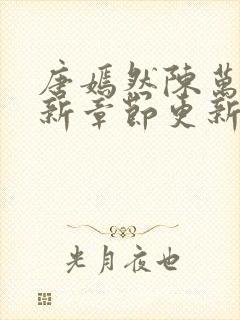 唐嫣然陳萬
新章節更新
光月夜也